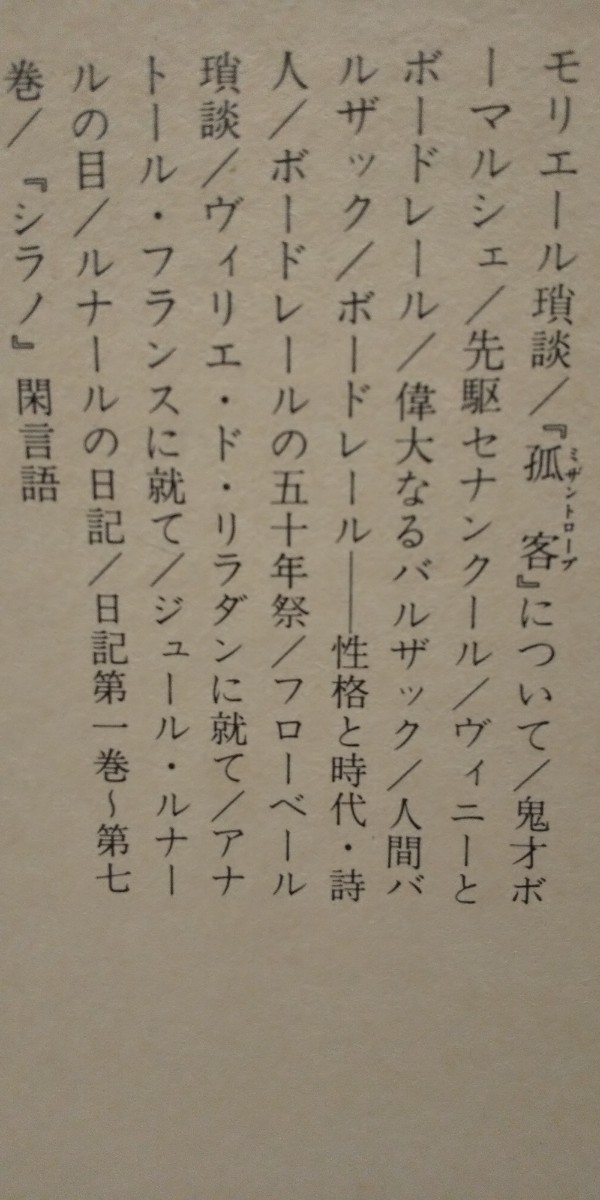 モリエール瑣談／『孤客』について／鬼才ボ
ミザントロープ
ーマルシェ／先駆セナンクール／ヴィニーと
ボードレール／偉大なるバルザック／人間バ
ルザック／ボードレール――性格と時代・詩
人／ボードレールの五十年祭／フローベール
瑣談／ヴィリエ・ド・リラダンに就て／アナ
トール・フランスに就て／ジュール・ルナー
ルの目／ルナールの日記／日記第一巻～第七
巻／『シラノ』閑言語